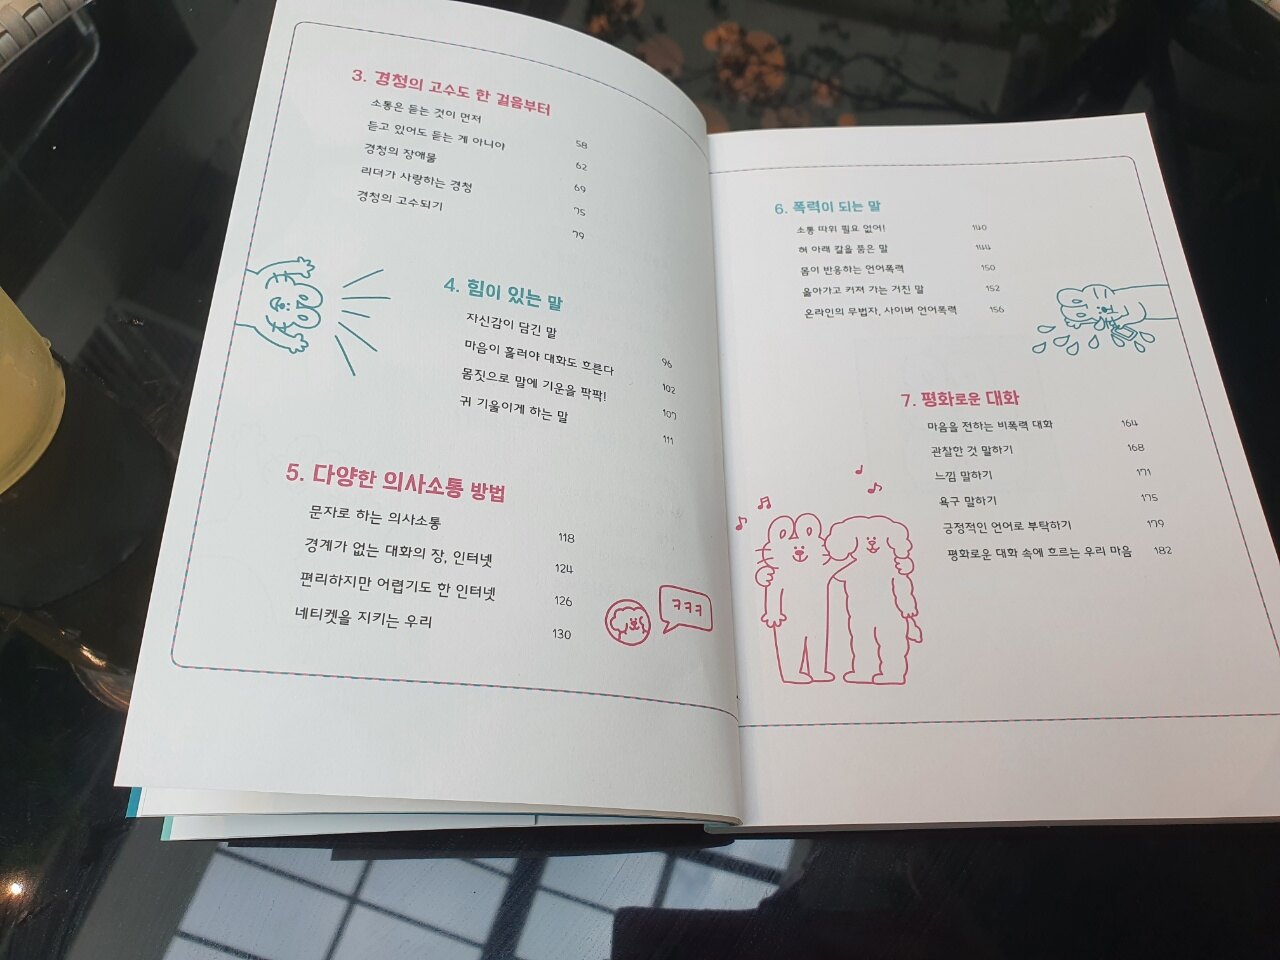 3. 경청의 고수도 한 걸음부터
소통은 듣는 것이 먼저 58
듣고 있어도 듣는 게 아니야 62
경청의 장애물 69
리더가 사랑하는 경청 75
경청의 고수되기 79
4. 힘이 있는 말
자신감이 담긴 말 96
마음이 흘러야 대화도 흐른다 102
몸짓으로 말에 기운을 팍팍! 107
귀 기울이게 하는 말 111
5. 다양한 의사소통 방법
문자로 하는 의사소통 118
경계가 없는 대화의 장, 인터넷 124
편리하지만 어렵기도 한 인터넷 126
네티켓을 지키는 우리 130
ㅋㅋㅋ
6. 폭력이 되는 말
소통 따위 필요 없어! 140
혀 아래 칼을 품은 말 144
몸이 반응하는 언어폭력 150
옮아가고 커져 가는 거친 말 152
온라인의 무법자, 사이버 언어폭력 156
7. 평화로운 대화
마음을 전하는 비폭력 대화 164
관찰한 것 말하기 168
느낌 말하기 171
욕구 말하기 175
긍정적인 언어로 부탁하기 179
평화로운 대화 속에 흐르는 우리 마음 182